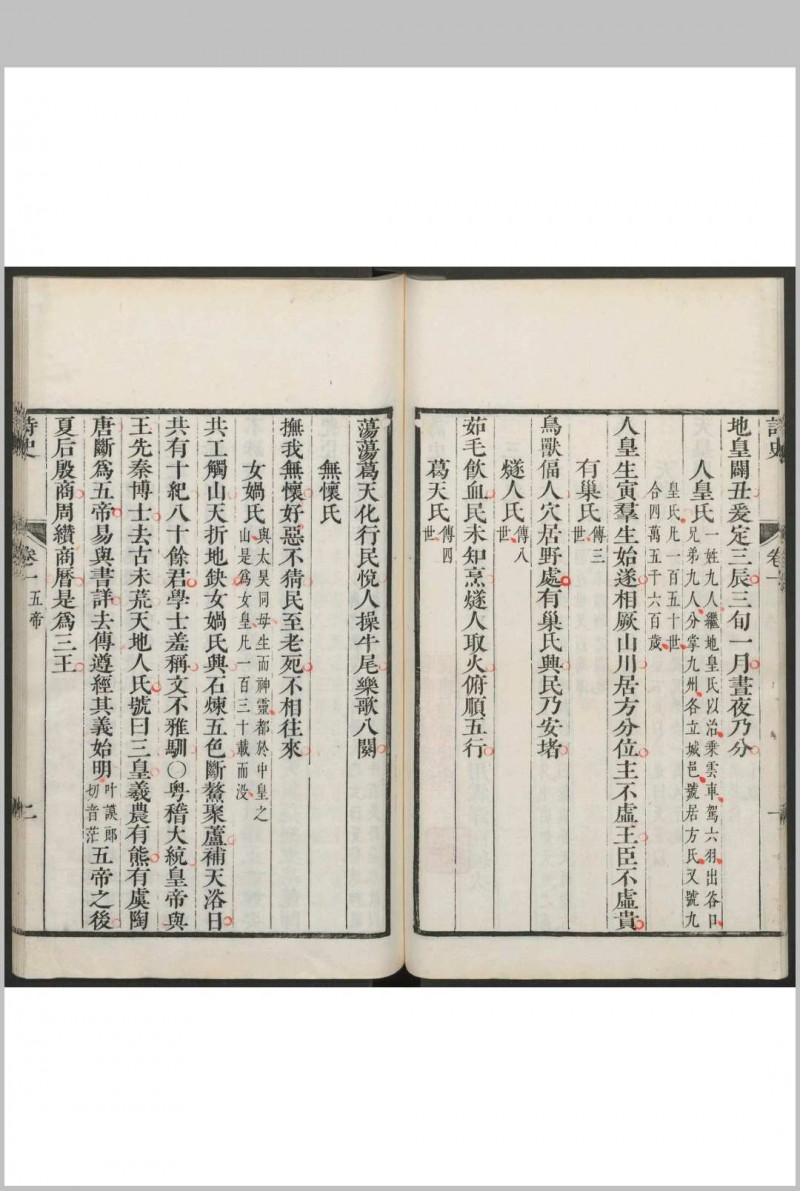 詩史
卷一
一
地皇闢丑爰定三辰三旬一月晝夜乃分
人皇氏一姓九人繼地皇氏以治乘雲車駕六羽出谷口
兄弟九人分掌九州各立城邑號居方氏又號九
皇氏凡一百五十世
合四萬五千六百歲
人皇生寅羣生始遂相厥山川居方分位主不虛王臣不虛貴
有巢氏傳三世
鳥獸偪人穴居野處有巢氏興民乃安堵
燧人氏傳八世
茹毛飲血民未知烹燧人取火俯順五行
葛天氏傳四世
蕩蕩葛天化行民悅人操牛尾樂歌八闋
無懷氏
撫我無懷好惡不猜民至老死不相往來
女媧氏與太昊同母生而神靈都於中皇之
山是爲女皇凡一百三十載而没
共工觸山天折地缺女媧氏興石煉五色斷鰲聚蘆補天浴日
共有十紀八十餘君學士羞稱文不雅馴○粵稽大統皇帝與
王先秦博士去古未荒天地人氏號曰三皇羲農有熊有虞陶
唐斷爲五帝易與書詳去傳遵經其義始明叶謨郎切音茫五帝之後
夏后殷商周纘商曆是爲三王
詩史
卷一
五帝
二